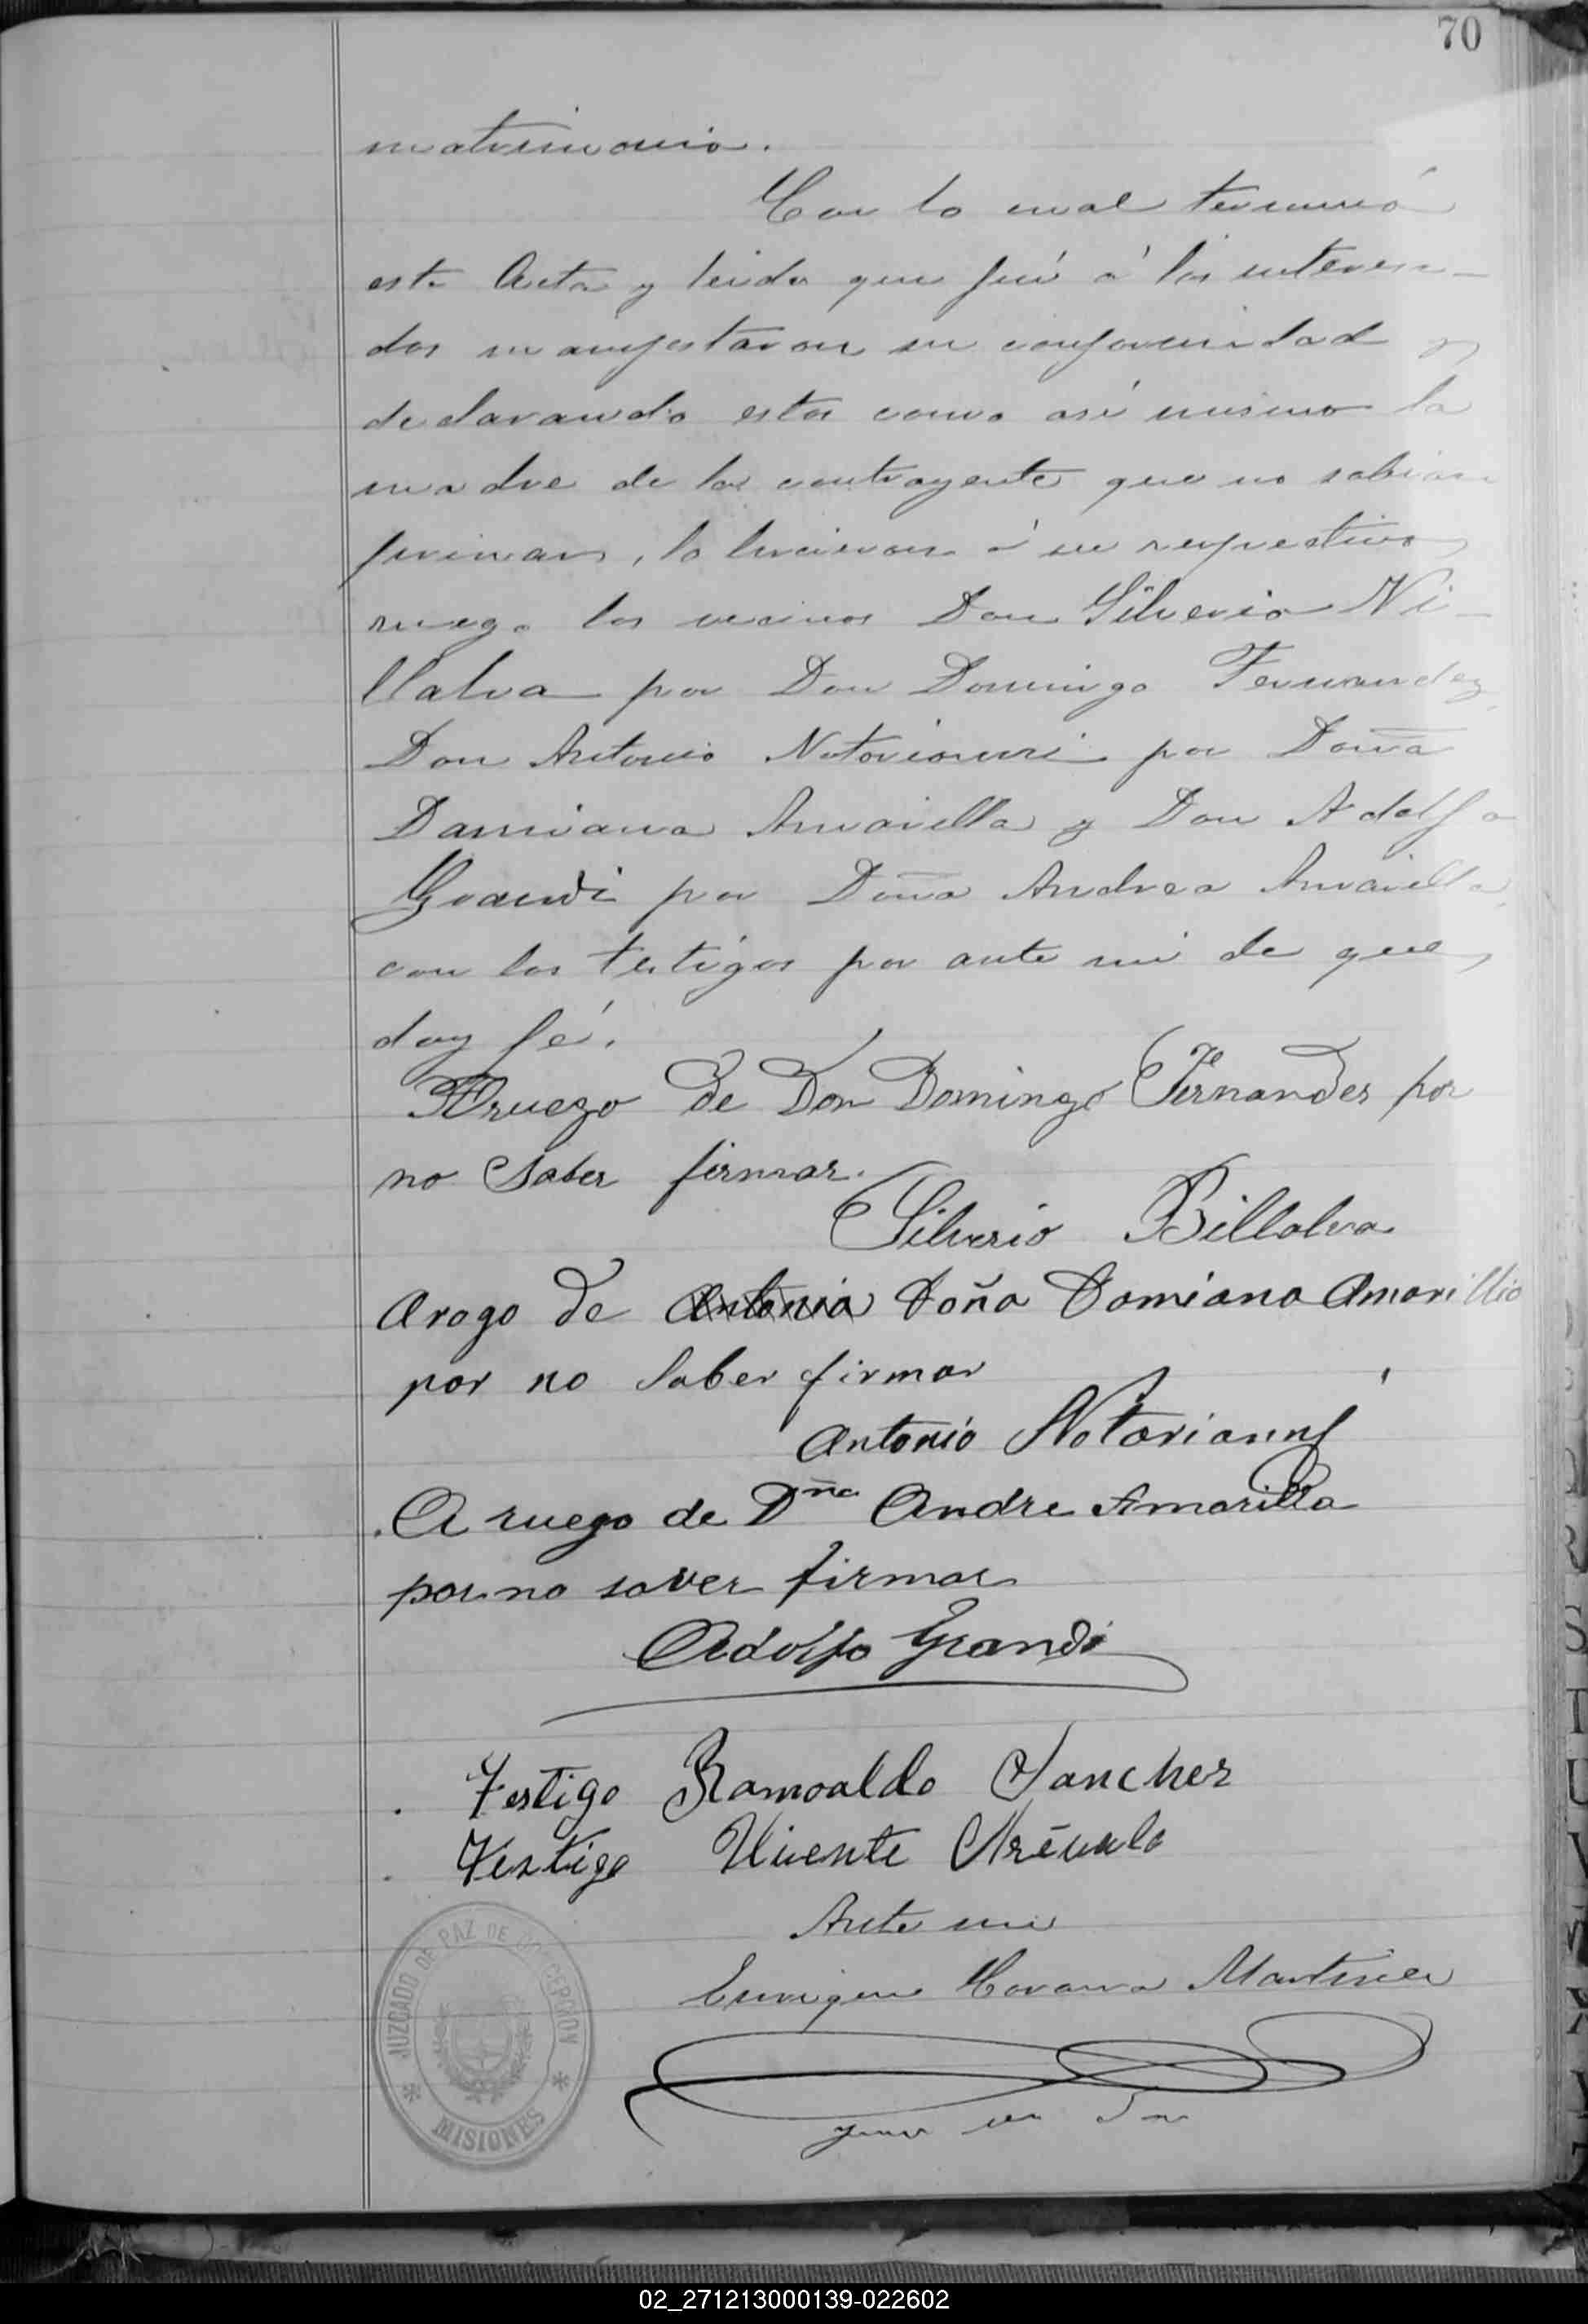 70
matrimonio.
Con lo cual terminó
esta Acta y leida que fué á los interesa-
dos manifestaron su conformidad y
declarando estos como asi mismo la
madre de la contrayente que no sabian
firmar, lo hicieron á su respectivo
ruego los vecinos Don Silverio Vi-
llalva por Don Domingo Fernandez
Don Antonio Notorianni por Doña
Damiana Amarilla y Don Adolfo
Grandi por Doña Andrea Amarilla,
con los testigos por ante mi de que
doy fé.
Aruego de Don Domingo Fernandes por
no Saber firmar.
Silverio Billalva
Arogo de Antonia Doña Damiana Amarillia
por no saber firmar
Antonio Notarianni
A ruego de Dña Andre Amarilla
por no saver firmar
Adolfo Grandi
Testigo Ramoaldo Sanchez
Testigo Vicente Arévalo
Ante mi
Martinez
JUZGADO DE PAZ DE CONCEPCION
* MISIONES *
02_271213000139-022602